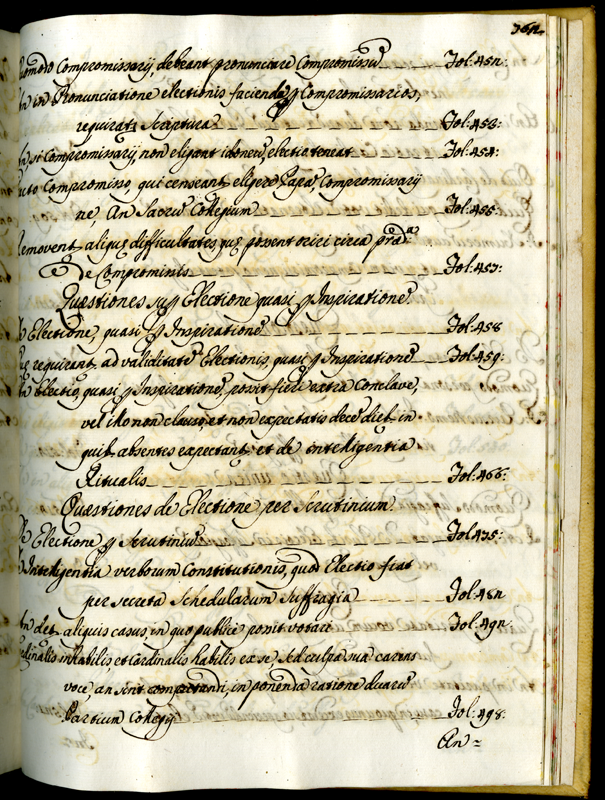 Compromissarij, debeant pronunciare Compromissũ Fol: 45
in Pronunciatione electionis faciendę p Compromissarios,
requirat: Scriptura Fol: 453:
si Compromissarij, non eligant idoneũ, electio teneat Fol: 454:
Compromisso, qui censeant eligere Papã, Compromissarij
ne, An Sacrũ Collegium Fol: 455:
Removent aliquę difficultates, quę possent oriri circa prędᵃ
de Compromissis Fol: 457:
Quæstiones sup Electione quasi p Inspirationẽ
Electione, quasi p Inspirationẽ Fol: 458
requirant, ad validitatẽ Electionis, quasi p Inspirationẽ Fol: 459:
Electio, quasi p Inspirationẽ, possit fieri extra Conclave,
vel illo non clauso, et non expectatis decẽ dieb, in
quib absentes expectant, et de intelligentia
Ritualis Fol: 466:
Quæstiones de Electione per Scrutinium
Electione p Scrutiniũ Fol: 475:
Intelligentia verborum Constitutionis, quod Electio fiat
per secreta Schedularum Suffragia Fol: 48
det aliquis casus, in quo publicè possit votari Fol: 49
inhabilis, et Cardinalis habilis ex se, sed culpa sua carens
voce, an sint computandi, in ponenda ratione duarũ
Partium Collegij Fol: 498:
An =